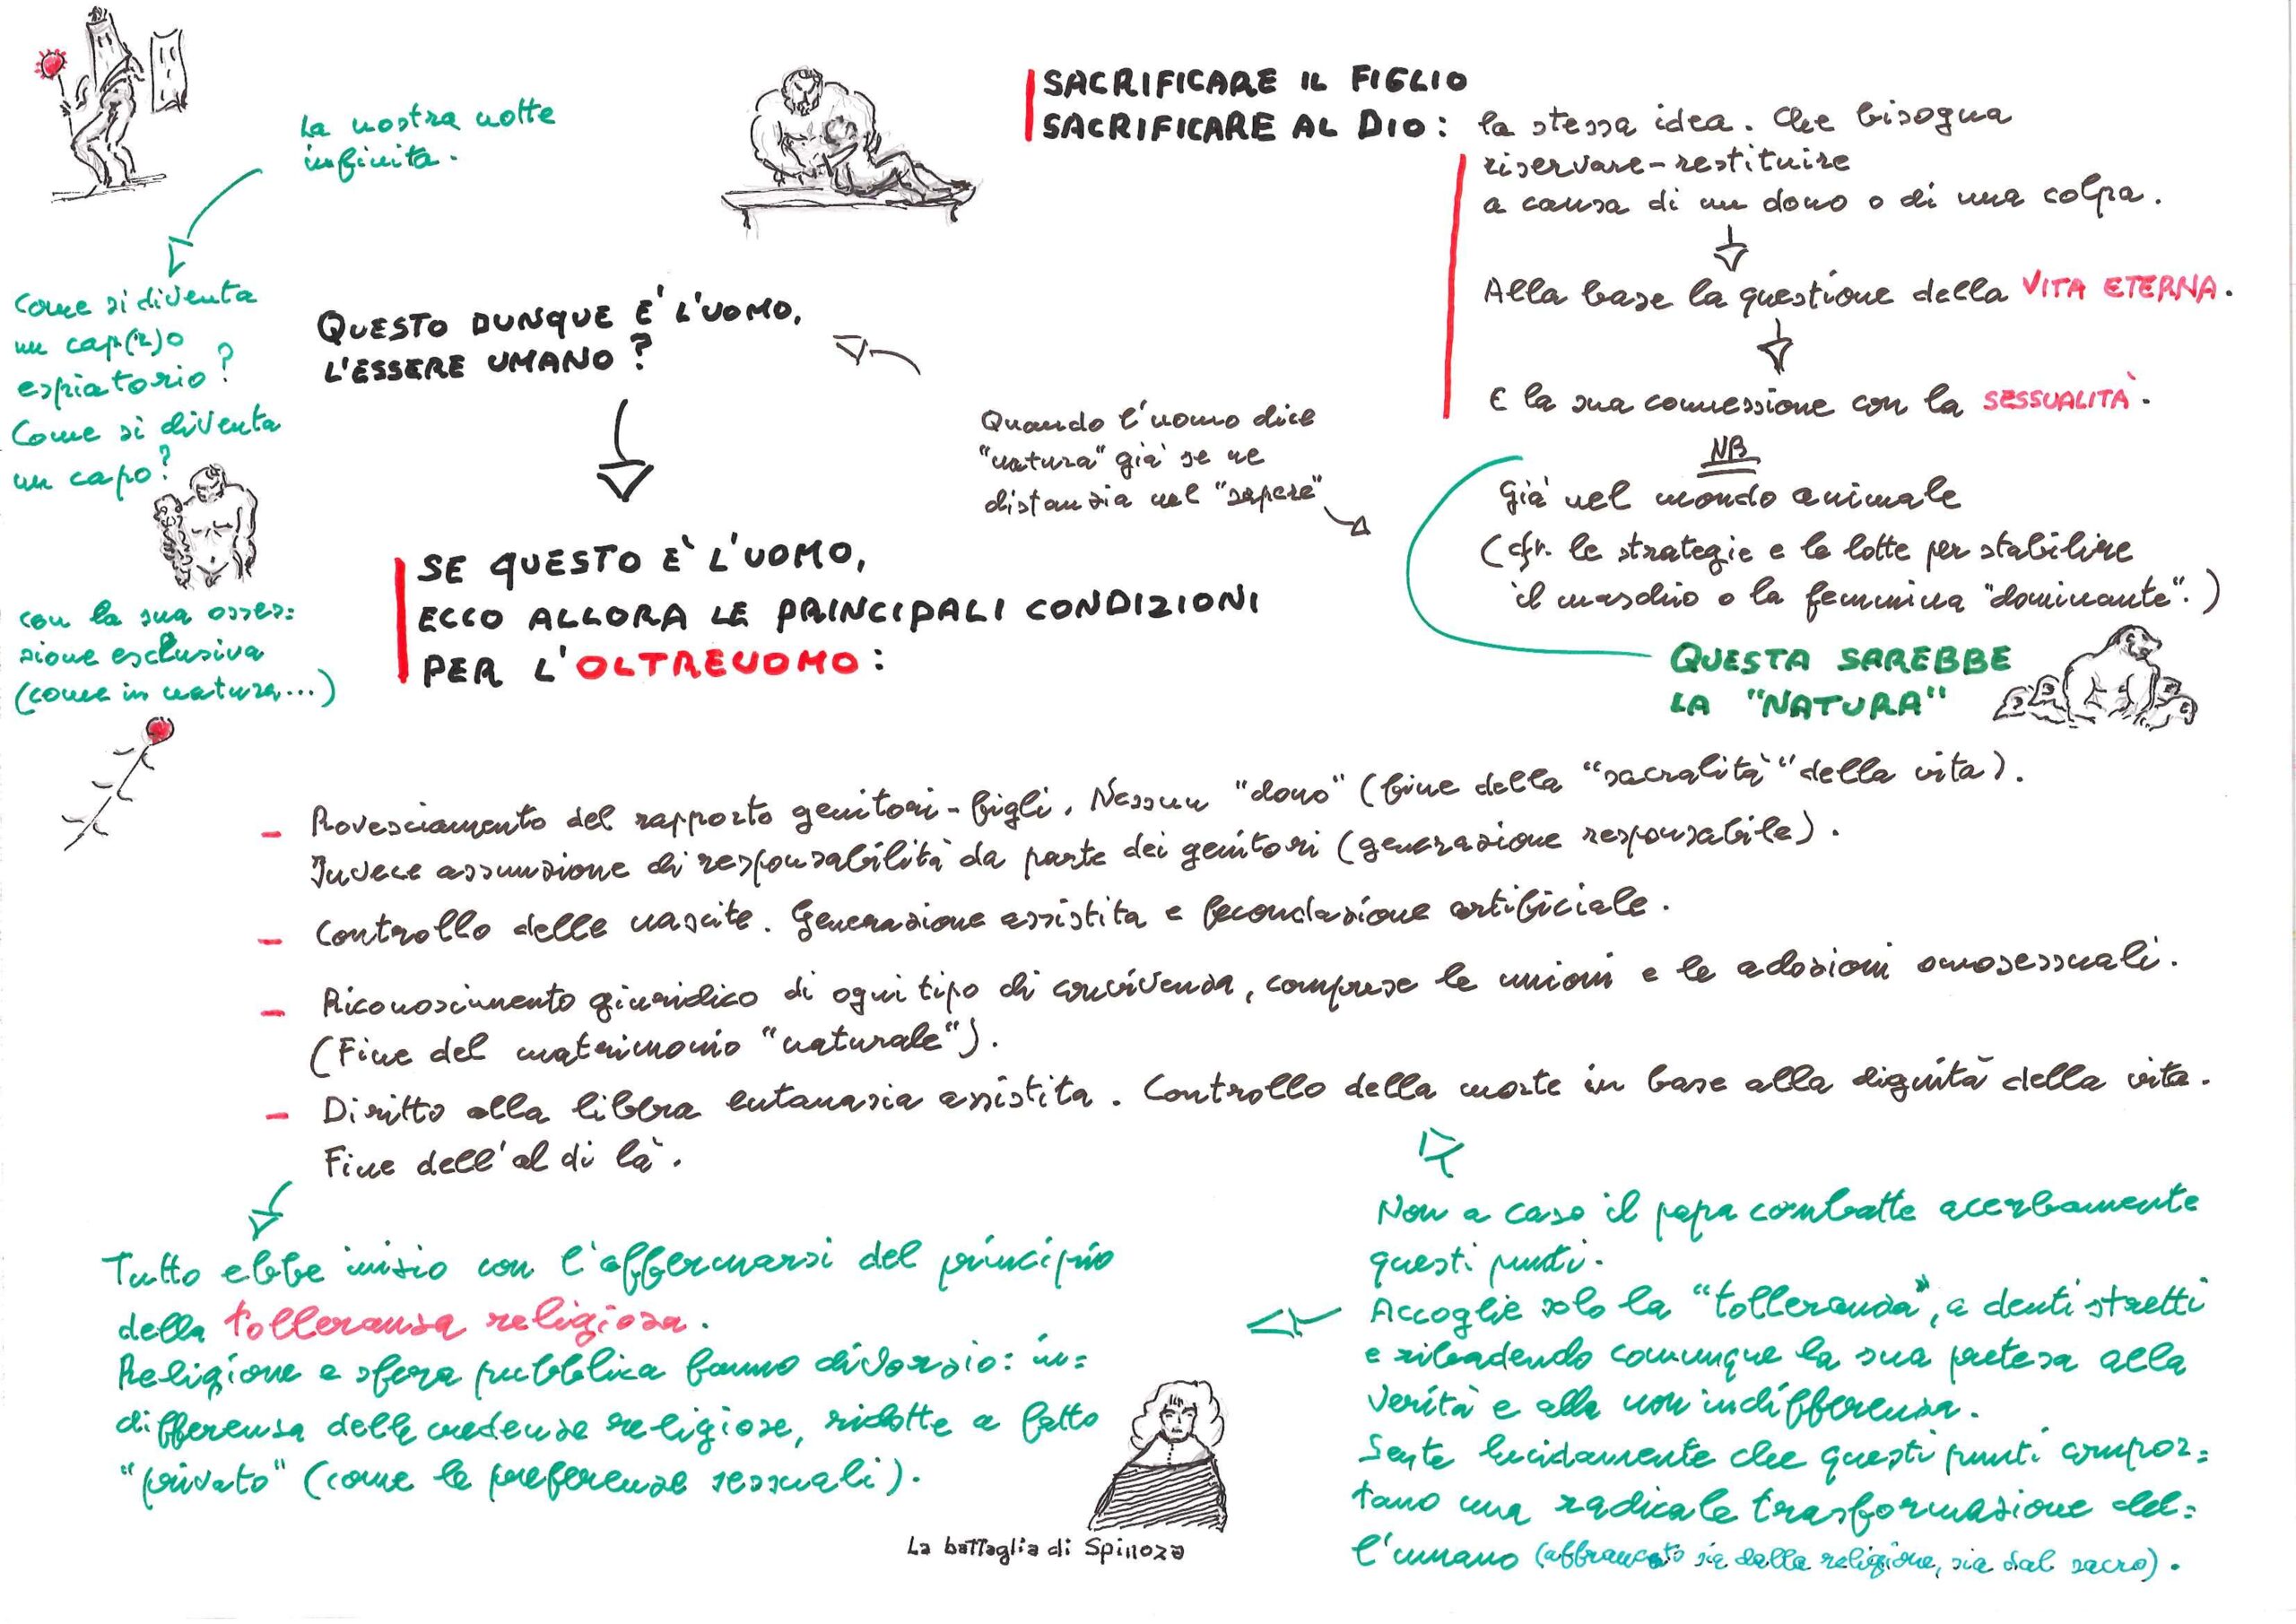 La nostra notte
infinita.
SACRIFICARE IL FIGLIO
SACRIFICARE AL DIO: la stessa idea. Che bisogna
riservare-restituire
a causa di un dono o di una colpa.
Alla base la questione della VITA ETERNA.
E la sua connessione con la SESSUALITÀ.
NB
Già nel mondo animale
(cfr. le strategie e le lotte per stabilire
il maschio o la femmina "dominante".)
QUESTA SAREBBE
LA "NATURA"
Quando l'uomo dice
"natura" già se ne
distanzia nel "sapere"
QUESTO DUNQUE E' L'UOMO,
L'ESSERE UMANO?
Come si diventa
un cap(r)o
espiatorio?
Come si diventa
un capo?
con la sua osses=
sione esclusiva
(come in natura...)
SE QUESTO È L'UOMO,
ECCO ALLORA LE PRINCIPALI CONDIZIONI
PER L'OLTREUOMO:
- Rovesciamento del rapporto genitori-figli. Nessun "dono" (fine della "sacralità" della vita).
Invece assunzione di responsabilità da parte dei genitori (generazione responsabile).
- Controllo delle nascite. Generazione assistita e fecondazione artificiale.
- Riconoscimento giuridico di ogni tipo di convivenza, comprese le unioni e le adozioni omosessuali.
(Fine del matrimonio "naturale").
- Diritto alla libera eutanasia assistita. Controllo della morte in base alla dignità della vita.
Fine dell'al di là.
Tutto ebbe inizio con l'affermarsi del principio
della tolleranza religiosa.
Religione e sfera pubblica fanno divorzio: in=
differenza delle credenze religiose, ridotte a fatto
"privato" (come le preferenze sessuali).
La battaglia di Spinoza
Non a caso il papa combatte acerbamente
questi punti.
Accoglie solo la "tolleranza", a denti stretti
e ribadendo comunque la sua pretesa alla
verità e alla non indifferenza.
Sente lucidamente che questi punti compor=
tano una radicale trasformazione del=
l'umano (affrancato sia dalla religione, sia dal sacro).